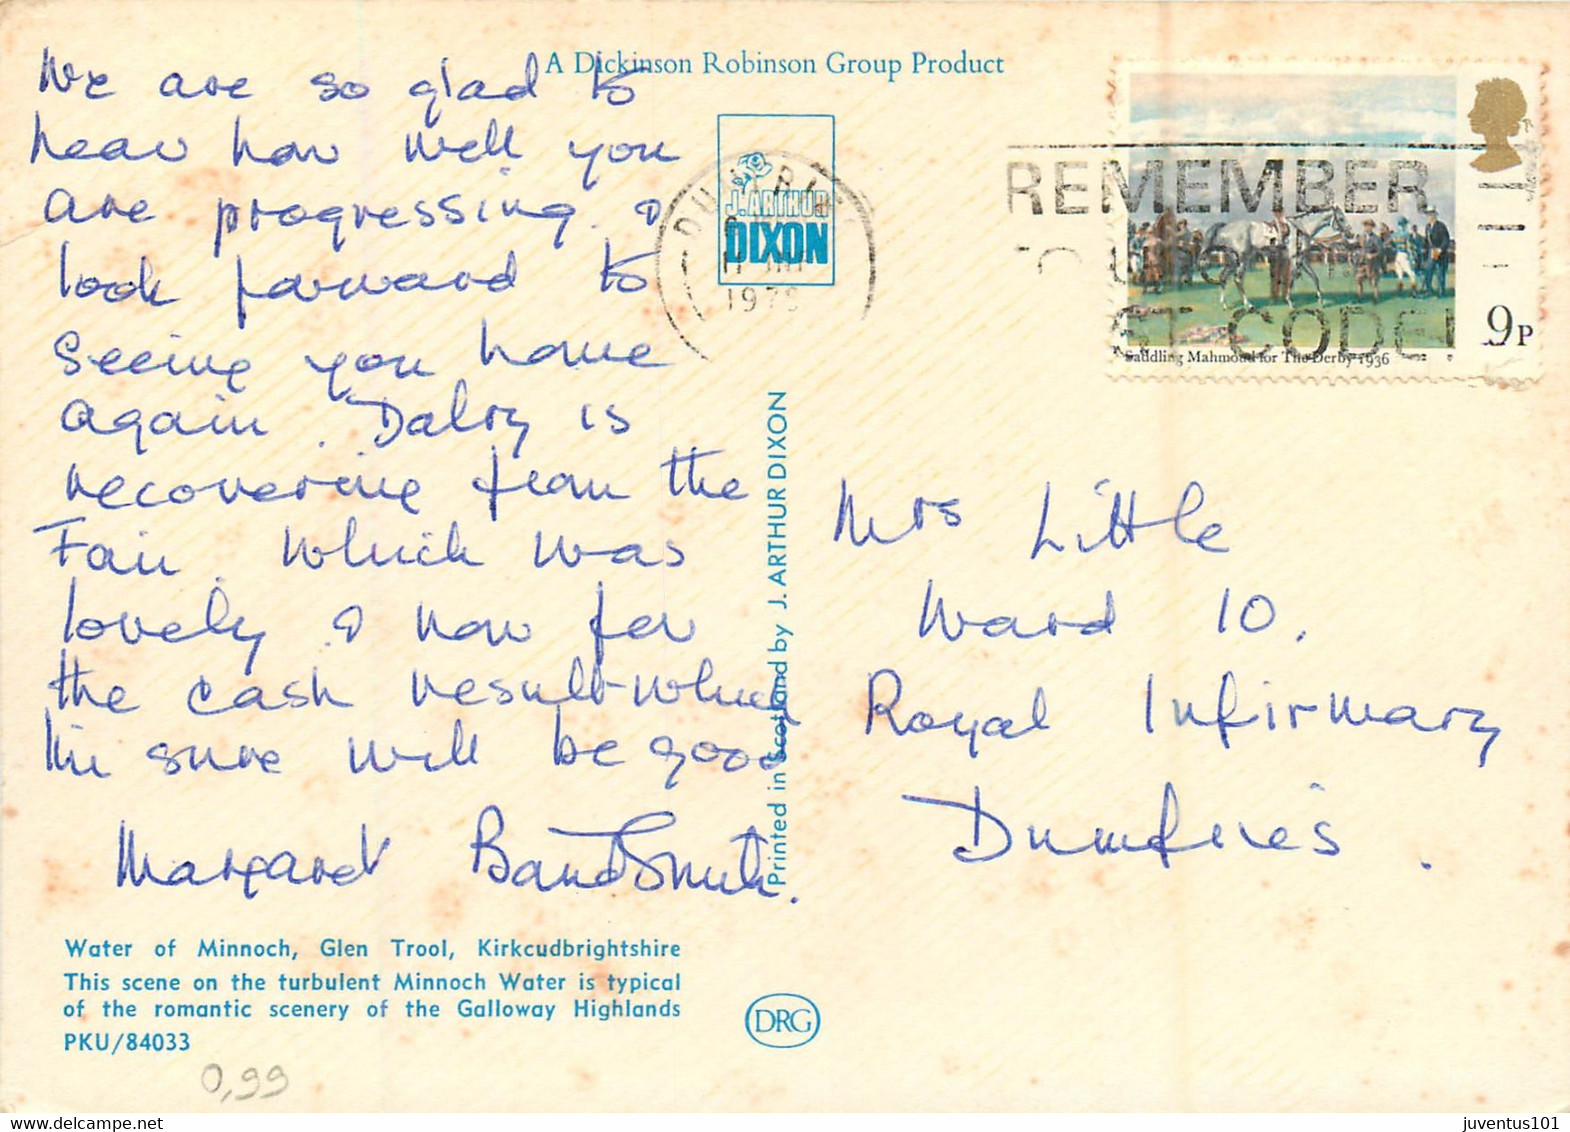 A Dickinson Robinson Group Product
We are so glad to
hear how well you
are progressing &
look forward to
seeing you home
again. Dalry is
recovering from the
Fair which was
lovely & now for
the cash result–which
I'm sure will be good
Margaret
J. ARTHUR
DIXON
1979
REMEMBER
CODE!
Saddling Mahmoud for The Derby 1936
9P
Printed in Scotland by J. ARTHUR DIXON
Mrs Little
Ward 10.
Royal Infirmary
Dumfries.
Water of Minnoch, Glen Trool, Kirkcudbrightshire
This scene on the turbulent Minnoch Water is typical
of the romantic scenery of the Galloway Highlands
PKU/84033
DRG
0,99
juventus101